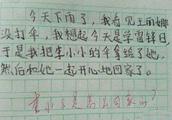 今天下雨了，我看见王丽娜
没打伞，我想起今天是学雷锋日
于是我把李小小的伞拿给了她，
然后和她一起开心地回家了。
李小小是怎么回家的？